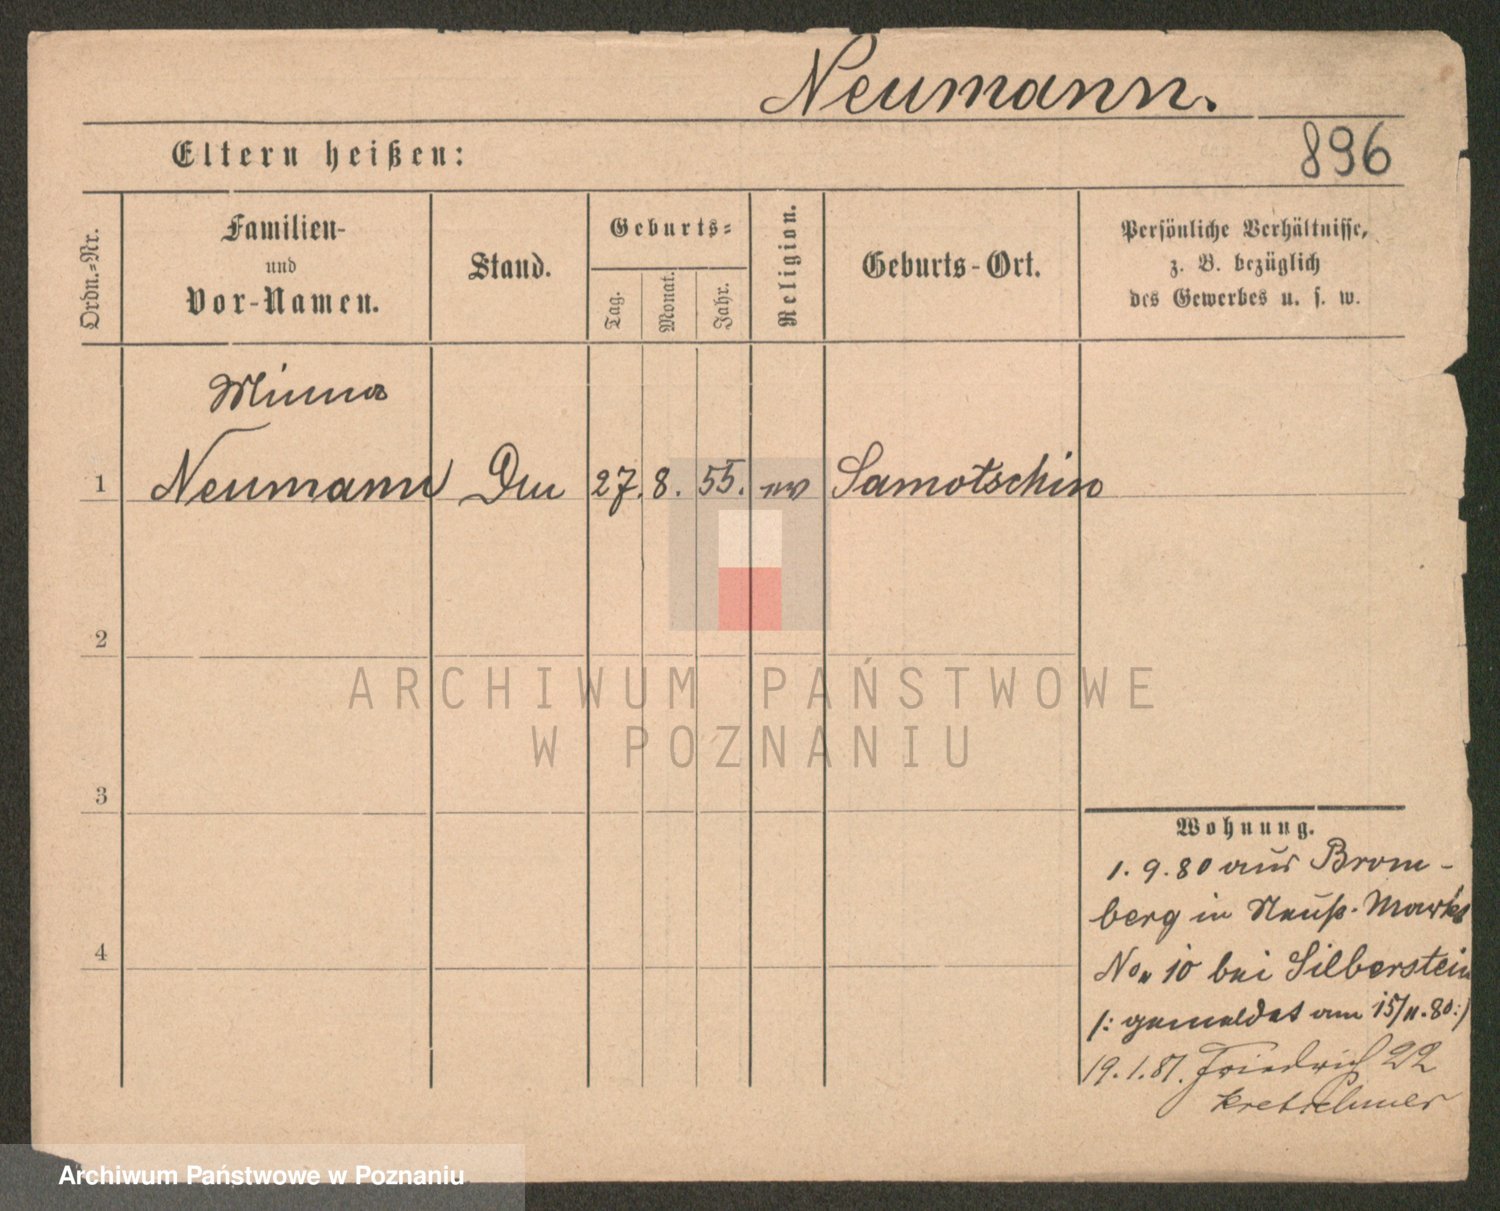 Neumann.
896
Eltern heißen:
Ordn.=Nr.
Familien-
und
Vor-Namen.
Stand.
Geburts=
Tag.
Monat.
Jahr.
Religion.
Geburts-Ort.
Persönliche Verhältnisse,
z. B. bezüglich
des Gewerbes u. s. w.
Minna
1 Neumann 27. 8. 55. Samotschin
2
3
4
Wohnung.
1. 9. 80 aus Brom-
berg in Neust. Markt
No. 10 bei Silberstein
/: gemeldet am 15/11. 80 :/
19. 1. 81. Friedrich 22
Kretschmer
ARCHIWUM PAŃSTWOWE
W POZNANIU
Archiwum Państwowe w Poznaniu